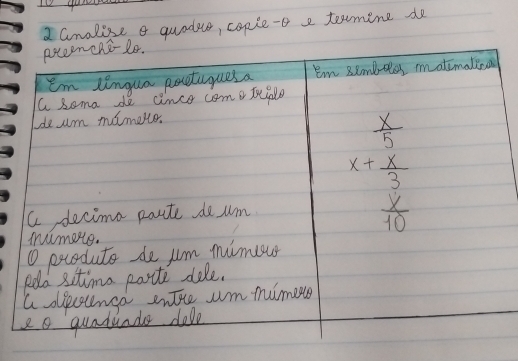 2 Analise o quadro, copie-o e termine de
preenchê-lo.
Em língua portuguesa
Em símbolos matemática
A soma de cinco com o triplo
de um número.
x/5
x + x/3
A decima parte de um
número.
x/10
O produto de um número
pela sétima parte dele.
A diferença entre um número
e o quadrado dele